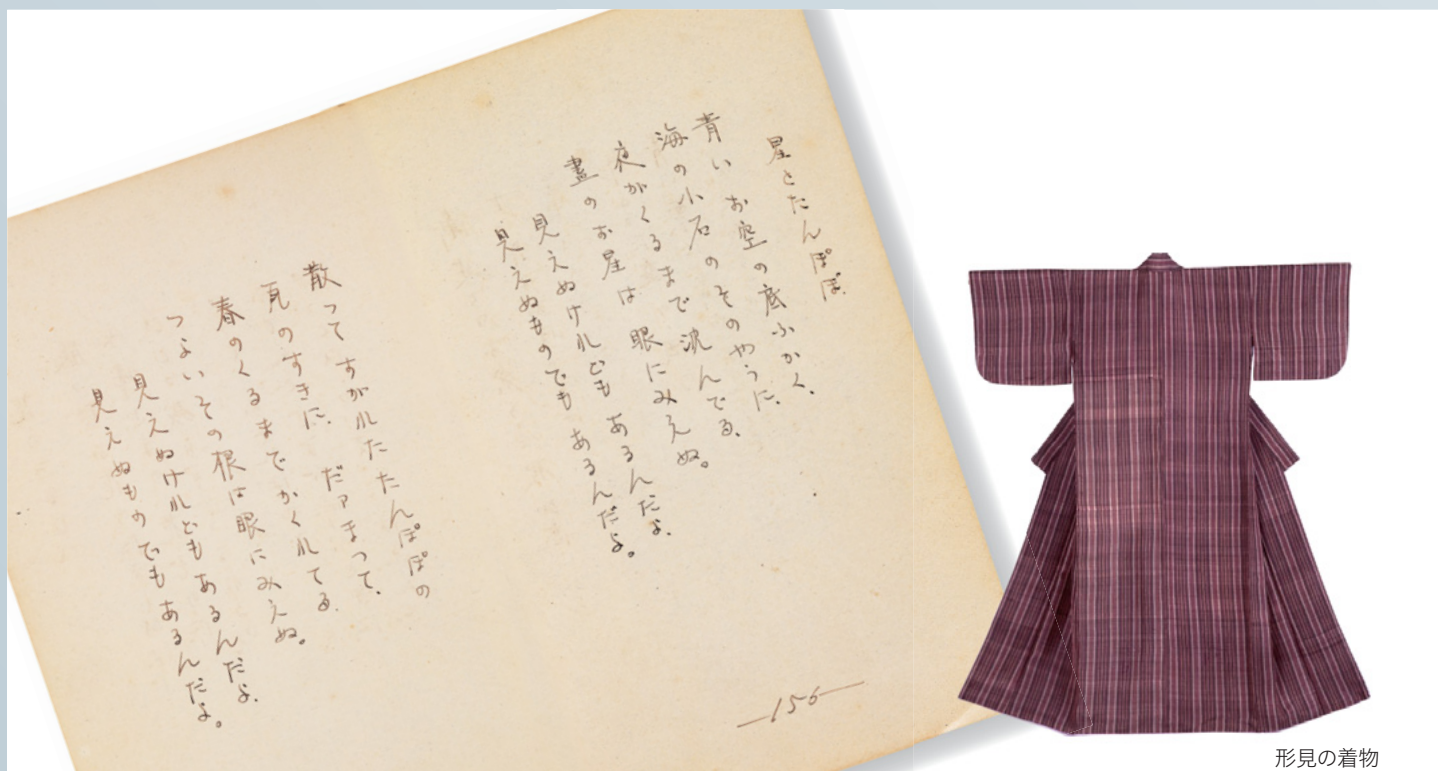 星とたんぽぽ
青い お空の底ふかく、
海の小石のそのやうに、
夜がくるまで沈んでる、
晝のお星は 眼にみえぬ。
見えぬけれども あるんだよ、
見えぬものでも あるんだよ。
散って すがれた たんぽぽの
瓦のすきに、 だァまって、
春のくるまで かくれてる、
つよいその根は 眼にみえぬ。
見えぬけれども あるんだよ、
見えぬものでも あるんだよ。
—156—
形見の着物